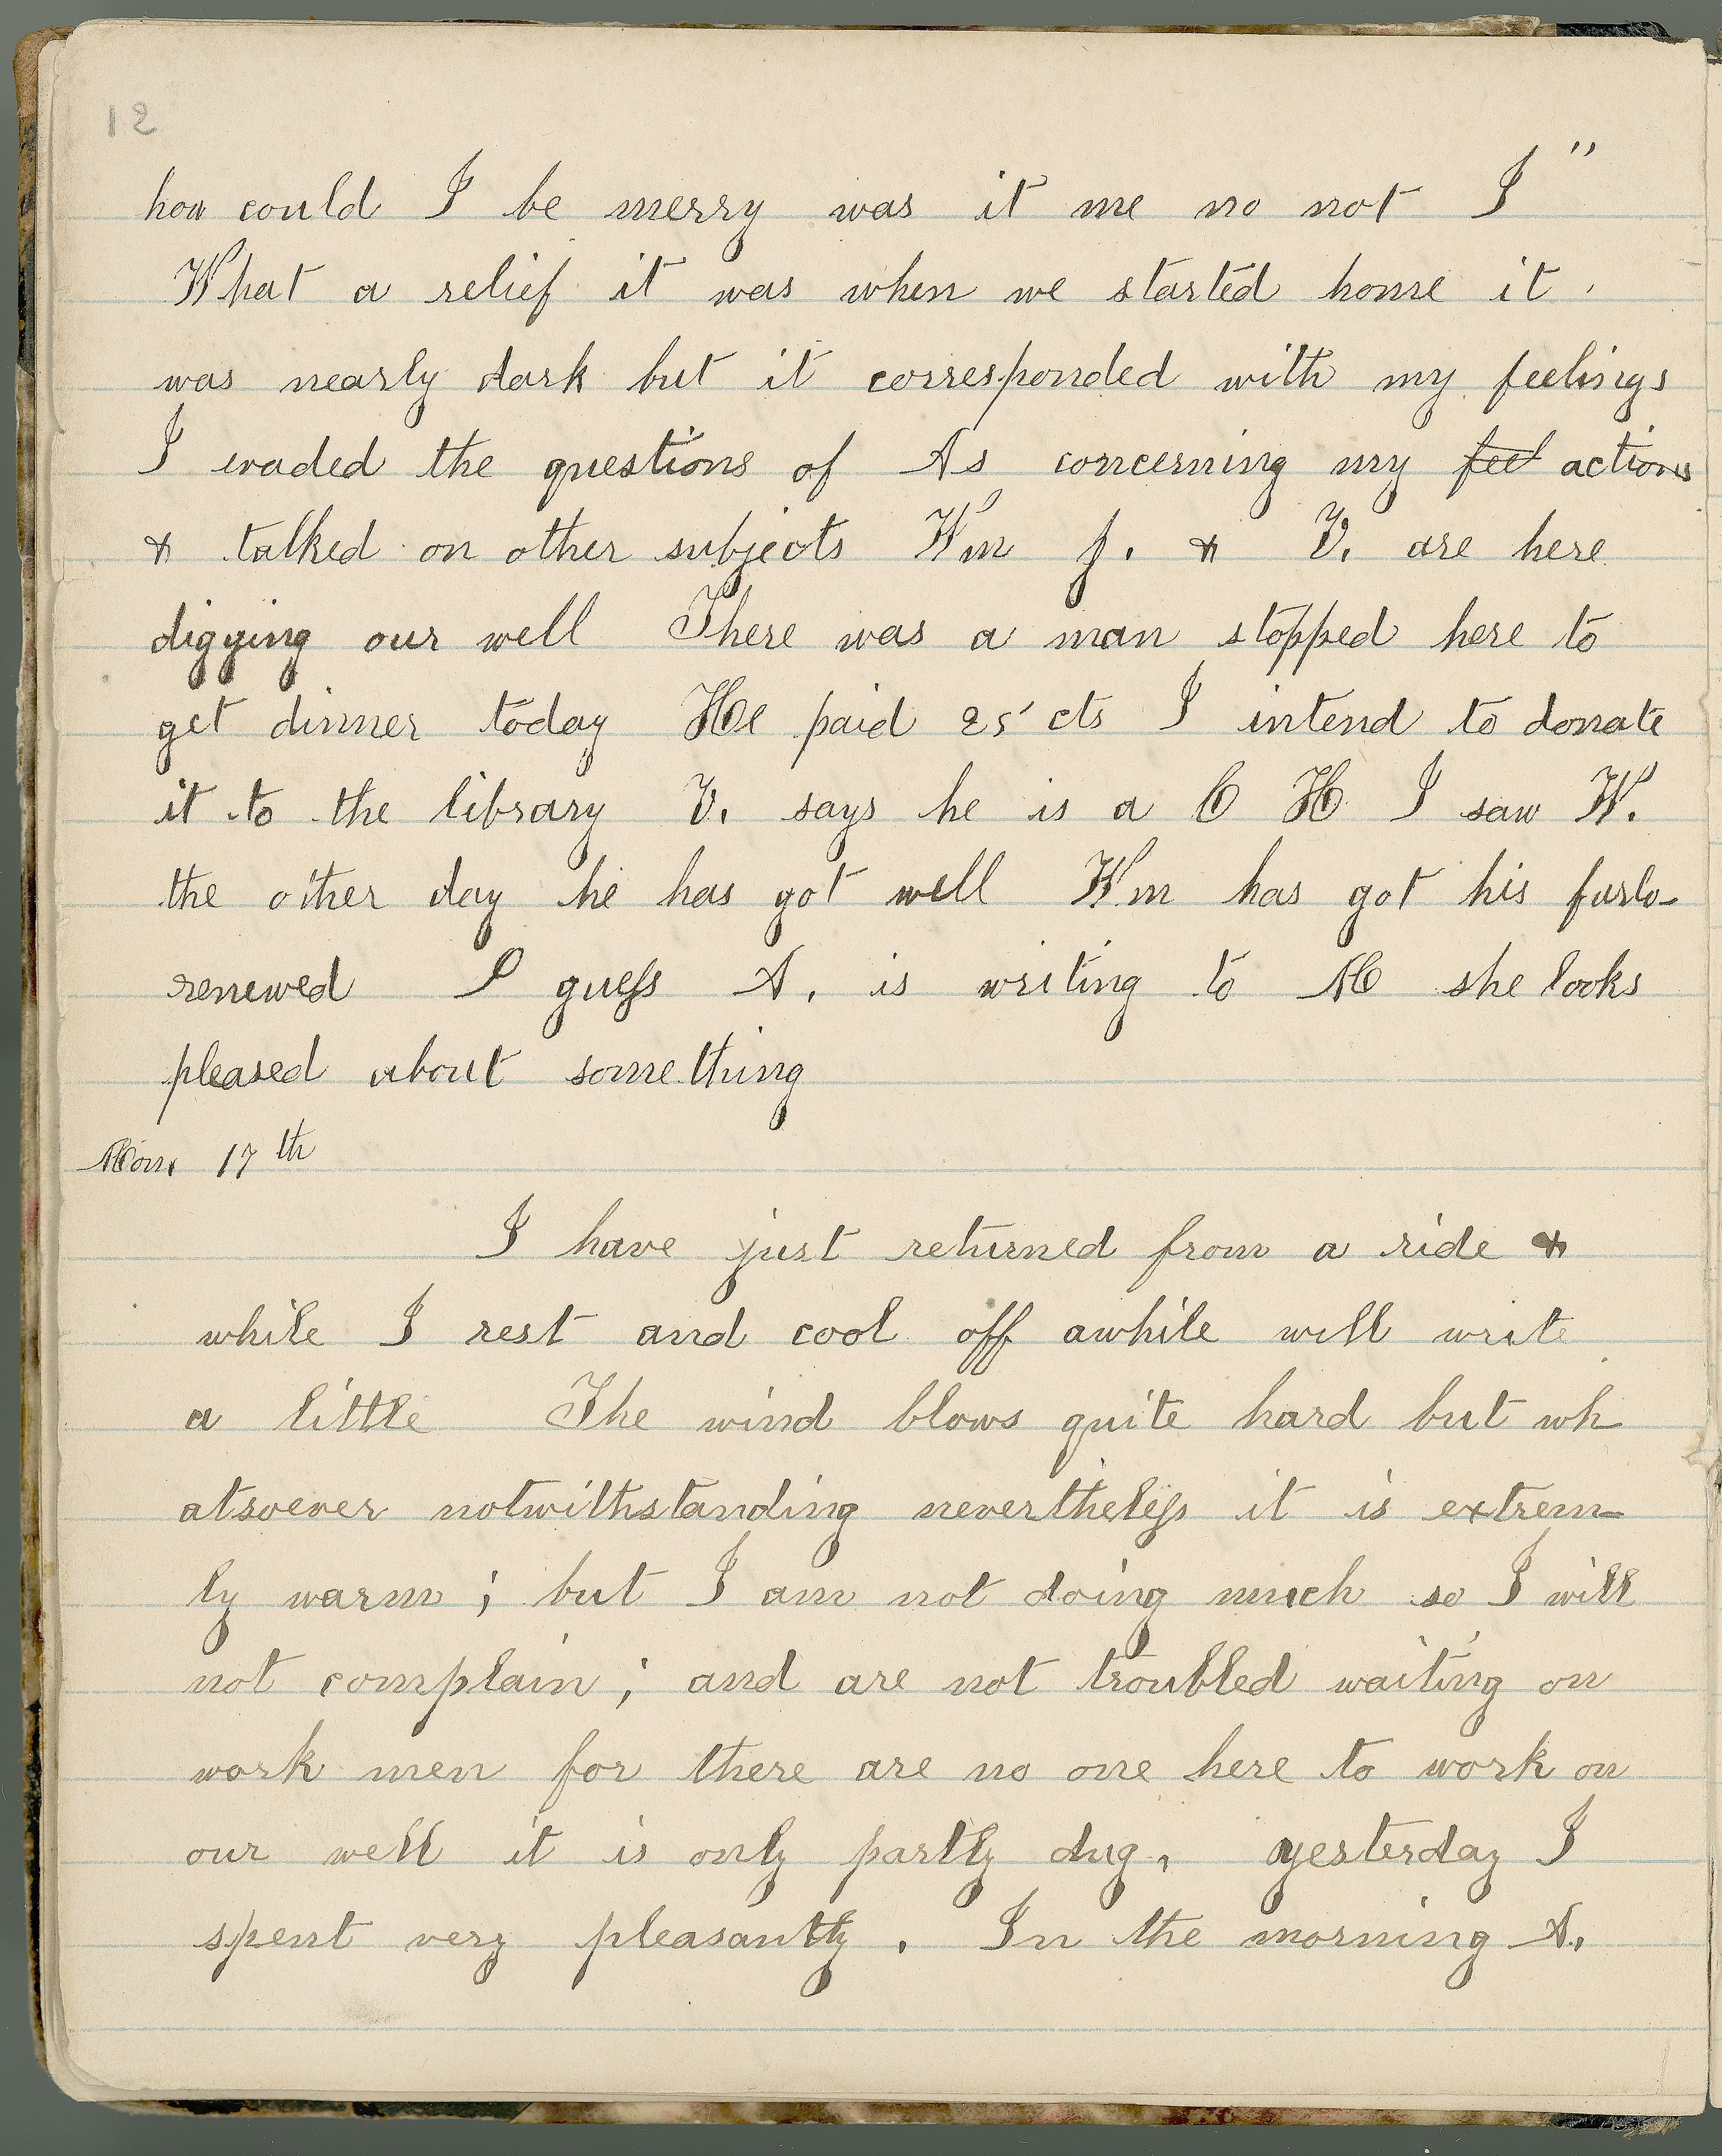 12
how could I be merry was it me no not I "
What a relief it was when we started home it
was nearly dark but it corresponded with my feelings
I evaded the questions of As concerning my feel actions
& talked on other subjects Wm J. & V. are here
digging our well There was a man stopped here to
get dinner today He paid 25 cts I intend to donate
it to the library V. says he is a C H I saw W.
the other day he has got well Wm has got his furlo-
renewed I guess A. is writing to M she looks
pleased about something
Mon. 17th
I have just returned from a ride &
while I rest and cool off awhile will write
a little The wind blows quite hard but wh
atsoever notwithstanding nevertheless it is extrem-
ly warm ; but I am not doing much so I will
not complain ; and are not troubled waiting on
work men for there are no one here to work on
our well it is only partly dug, yesterday I
spent very pleasantly . In the morning A.